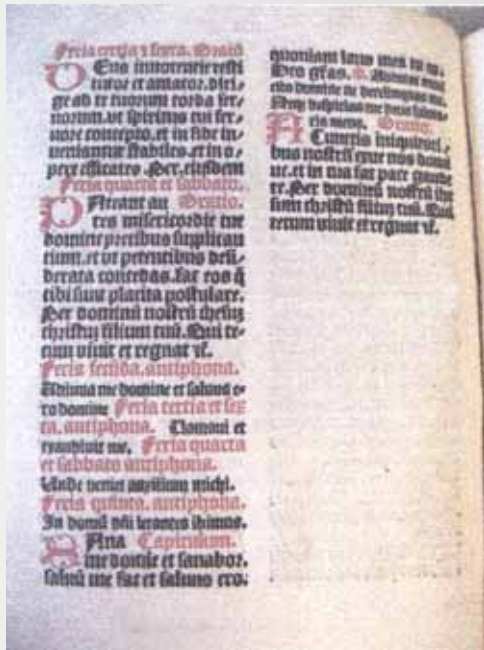 Feria tertia ⁊ sexta. Oratio
DEus innocentie resti
tutor et amator. diri/
ge ad te tuorum corda ser/
uorum. ut spiritus tui fer/
uore concepto. et in fide in/
ueniantur stabiles. et in o/
pere efficaces. Per. eiusdem
Feria quarta et sabbato.
PAteant au Oratio.
res misericordie tue
domine precibus supplican
tium. et ut petentibus desi/
derata concedas. fac eos q̄
tibi sunt placita postulare.
Per dominū nostrū ihesū
christū filium tuū. Qui te/
cum viuit et regnat ⁊c̄.
Feria secūda. antiphona.
Adiuua me domine et saluus e/
ro domine Feria tertia et sex
ta. antiphona. Clamaui et
exaudiuit me. Feria quarta
et sabbato antiphona.
Unde veniet auxilium michi.
Feria quinta. antiphona.
In domū dn̄i letantes ibimus.
SAna Capitulum.
me domine et sanabor.
saluū me fac et saluus ero.
quoniam laus mea tu es.
Deo grās. Adiutor meus
esto domine ne derelinquas me.
Neq; despicias me deus saluta/
ris meus. Oratio.
A Cunctis iniquitati/
bus nostris exue nos domi
ne. et in tua fac pace gaude
re. Per dominū nostrū ihe
sum christū filiū tuū. Qui
tecum viuit et regnat ⁊c̄.